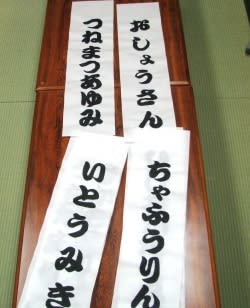 おしょうさん
つねまつあゆみ
ちゃふうりん
いとうみき